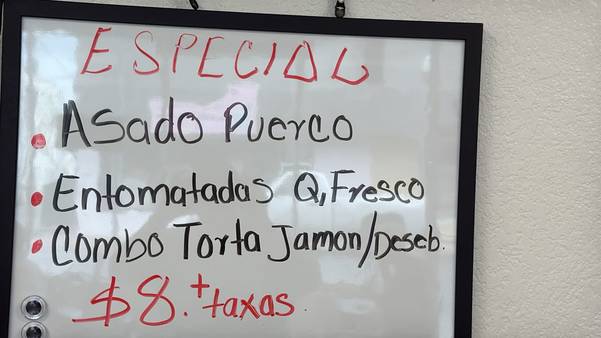 ESPECIAL
• Asado Puerco
• Entomatadas Q, Fresco
• Combo Torta Jamon/Deseb.
$8.+taxas.